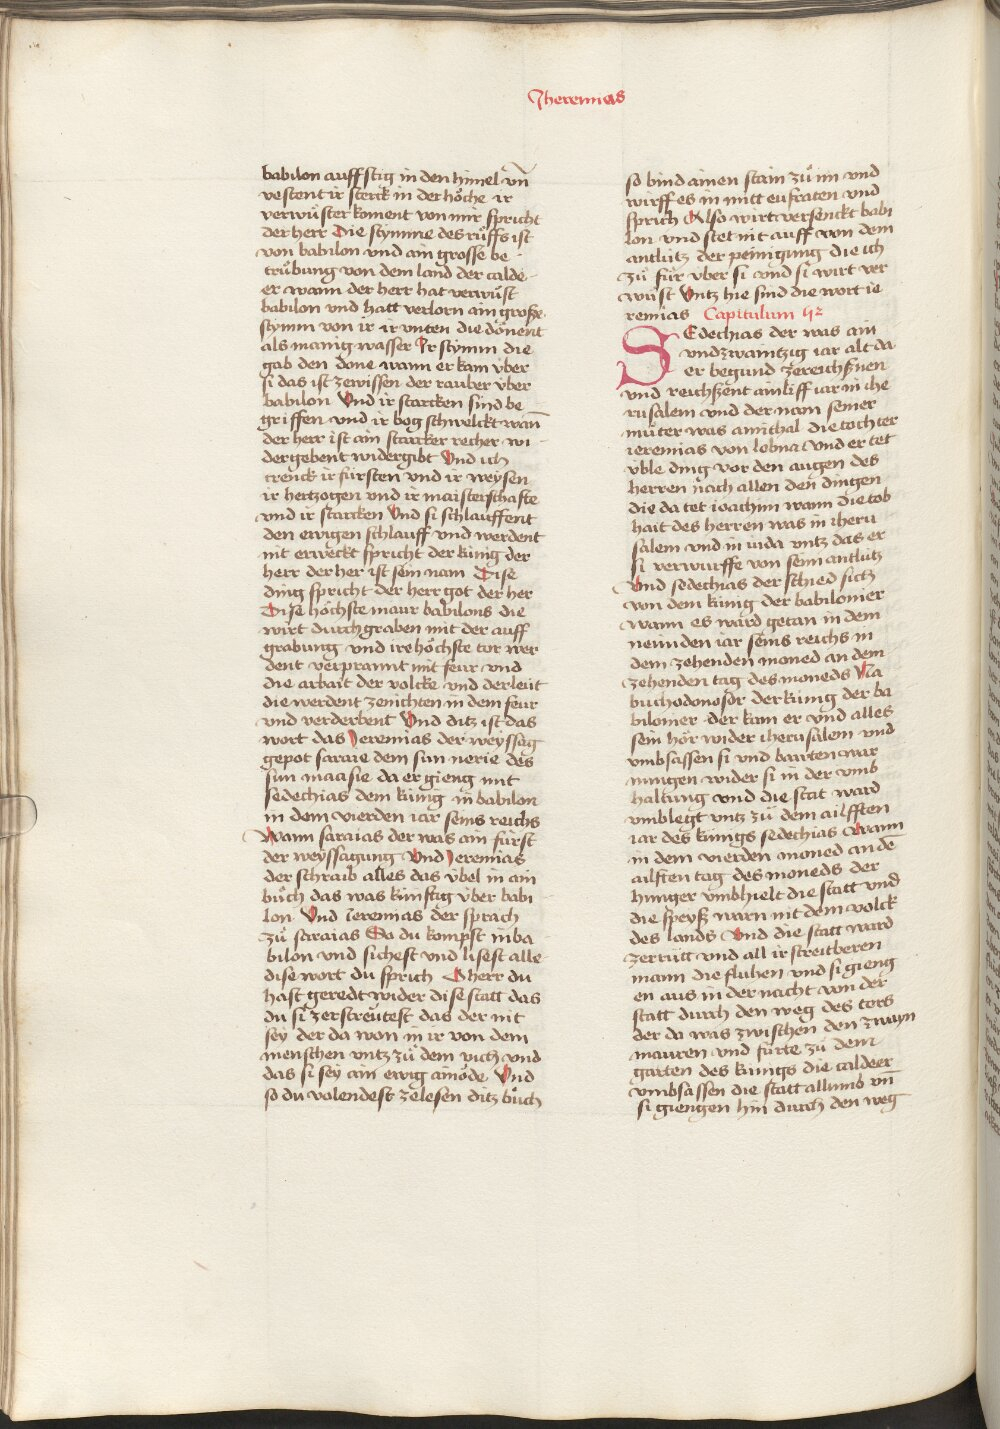 Jheremias
babilon auffstig in den himel vn̄
vestent ir sterck in der höche ir
verwüster koment von mir spricht
der herr Die stymme des rüffs ist
von babilon vnd ain grosse be
trübung von dem land der calde
er wann der herr hat verwüst
babilon vnd hatt verlorn ain große
stymm von ir ir vnten die dönent
als manig wasser Ir stymm die
gab den done wann er kam vber
si das ist zewissen der rauber vber
babilon Vnd ir starcken sind be
griffen vnd ir bog schwelckt wan̄
der herr ist ain starcker recher wi
dergebent widergibt Vnd ich
trenck ir fürsten vnd ir weysen
ir hertzogen vnd ir maisterschafte
vnd ir starcken Vnd si schlauffent
den ewigen schlauff vnd werdent
nit erweckt spricht der künig der
herr der her ist sein nam Dise
ding spricht der herr got der her
Dise höchste maur babilons die
wirt durchgraben mit der auff
grabung vnd ire höchste tor wer
dent verprannt mit feur vnd
die arbait der volcke vnd der leüt
die werdent zenichten in dem feur
vnd verderbent Vnd ditz ist das
wort das Jeremias der weyssag
gepot saraie dem sun nerie des
sun maasie da er gieng mit
sedechias dem künig in babilon
in dem vierden iar seins reichs
Wann saraias der was ain fürst
der weyssagung Vnd Jeremias
der schraib alles das übel in ain
büch das was künftig vber babi
lon Vnd ieremias der sprach
zü saraias So du kompst in ba
bilon vnd sichest vnd lisest alle
dise wort du sprich O herr du
hast geredt wider dise statt das
du si zerstreütest das der nit
sey der da won in ir von dem
menschen vntz zü dem vich vnd
das si sey ain ewig ainöde Vnd
so du volendest zelesen ditz büch
so bind ainen stain zü im vnd
wirff es in mitt eufraten vnd
sprich Also wirt versenckt babi
lon vnd stet nit auff von dem
antlütz der peinigung die ich
zü für vber si vnd si wirt ver
wüst Vntz hie sind die wort ie
remias Capitulum lij
SEdechias der was ain
vndzwaintzig iar alt da
er begund zereichßnen
vnd reichßent ainliff iar in ihe
rusalem vnd der nam seiner
müter was amithal die tochter
ieremias von lobna Vnd er tet
vble ding vor den augen des
herren nach allen den dingen
die da tet ioachim wann die tob
hait des herren was in iheru
salem vnd in iuda vntz das er
si verwurffe von seim antlütz
Vnd sedechias der schied sich
von dem künig der babilonier
wann es ward getan in dem
neünden iar seins reichs in
dem zehenden moned an dem
zehenden tag des moneds Na
buchodonosor der künig der ba
bilonier der kam er vnd alles
sein hör wider iherusalem vnd
vmbsassen si vnd bawten war
nungen wider si in der vmb
haltung vnd die stat ward
vmblegt vntz zü dem ailfften
iar des künigs sedechias Wann
in dem vierden moned an dē
ailften tag des moneds der
hunger vmbhielt die statt vnd
die speyß warn nit dem volck
des lands Vnd die statt ward
zerrütt vnd all ir streitberen
mann die fluhen vnd si gieng
en aus in der nacht von der
statt durch den weg des tors
der da was zwischen den zwayn
mauren vnd fürte zü dem
garten des künigs die caldeer
vmbsassen die statt allumb vn̄
si giengen hin durch den weg